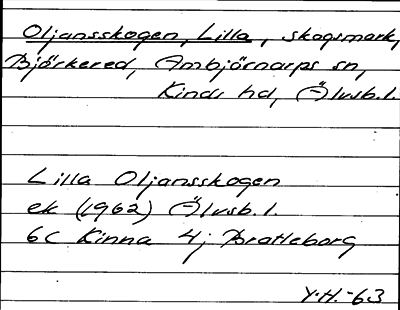 Oljansskogen, Lilla, skogsmark,
Björkered, Ambjörnarps sn,
Kinds hd, Älvsb. l.
Lilla Oljansskogen
ek (1962) Älvsb. l.
6C Kinna 4j Bratteborg
Y.H. -63